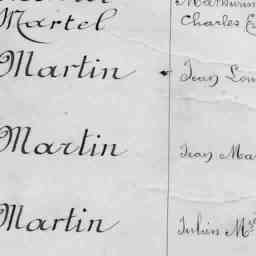 Mathurin
Martel Charles
Martin Jean Lou
Martin Jean Mar
Martin Julien M